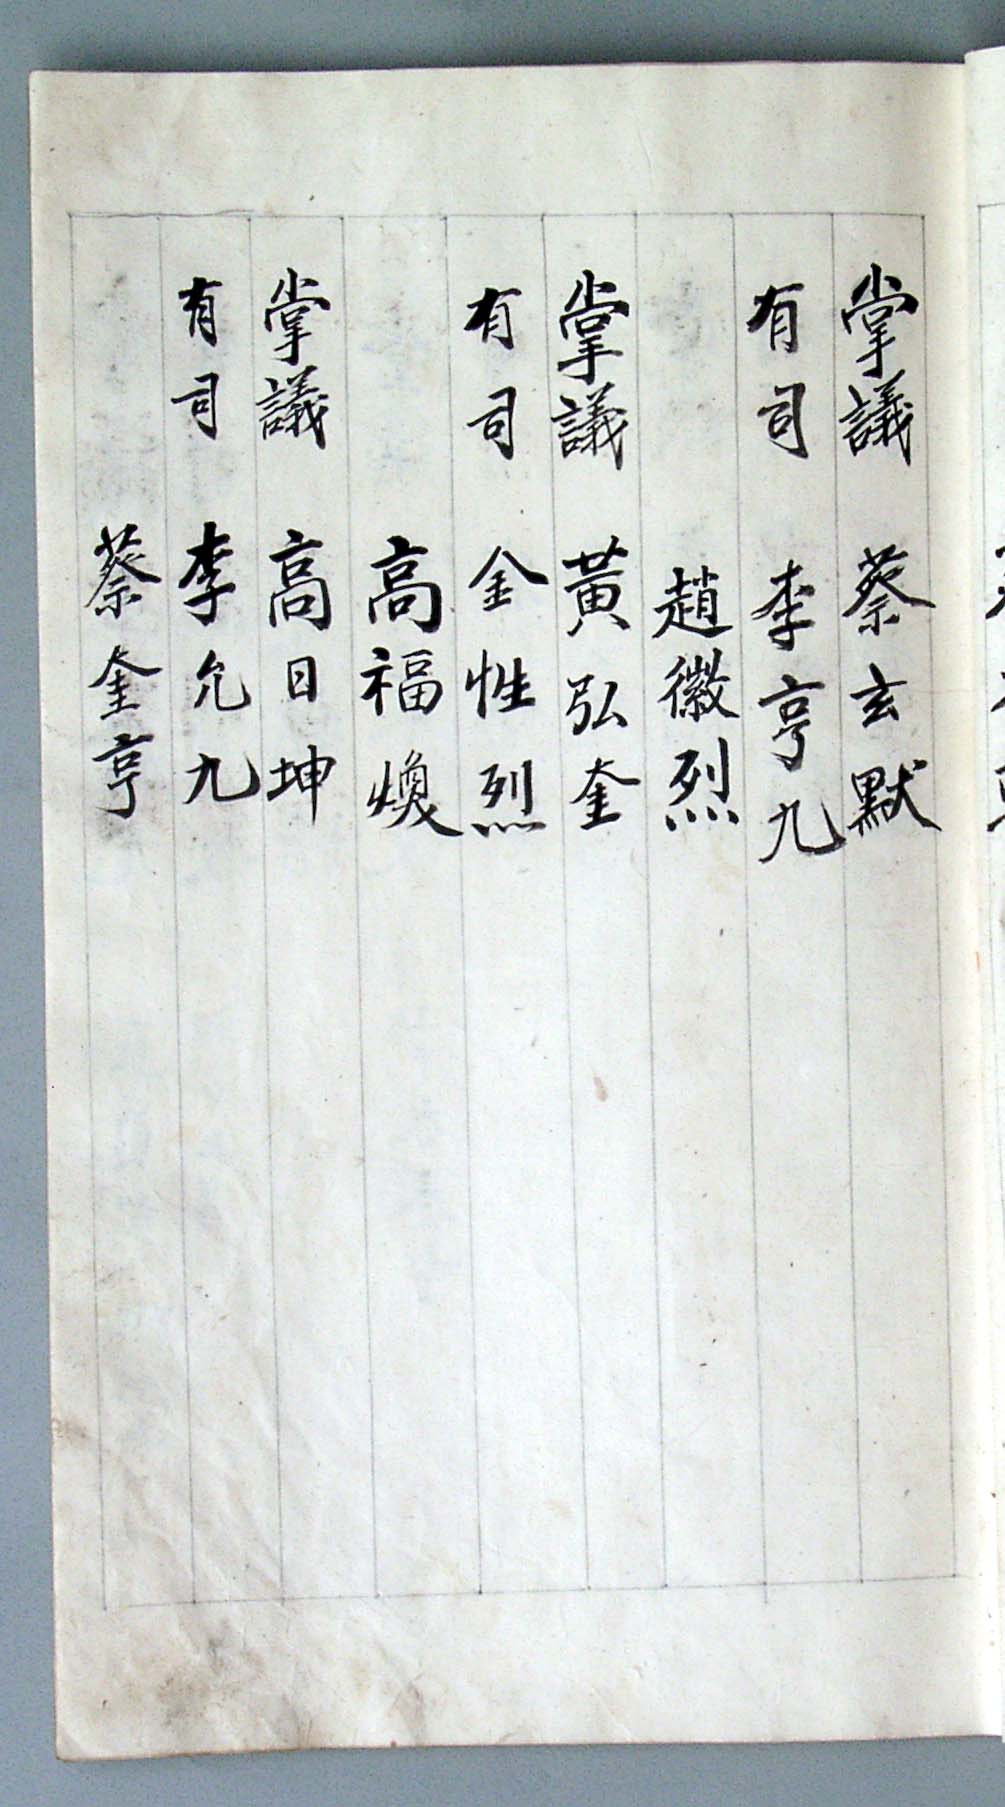 掌議 蔡玄默
有司 李亨九
趙徽烈
掌議 黃弘奎
有司 金性烈
高福煥
掌議 高日坤
有司 李允九
蔡奎亨